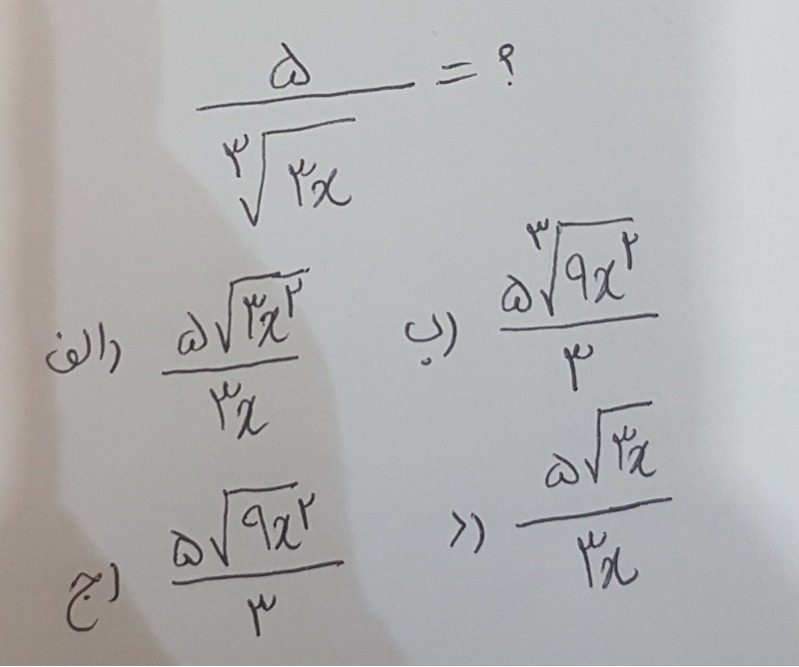 ۵ / ∛(۳x) = ؟
الف) ۵√(۳x²) / ۳x
ب) ۵∛(۹x²) / ۳
ج) ۵√(۹x²) / ۳
د) ۵√(۳x) / ۳x